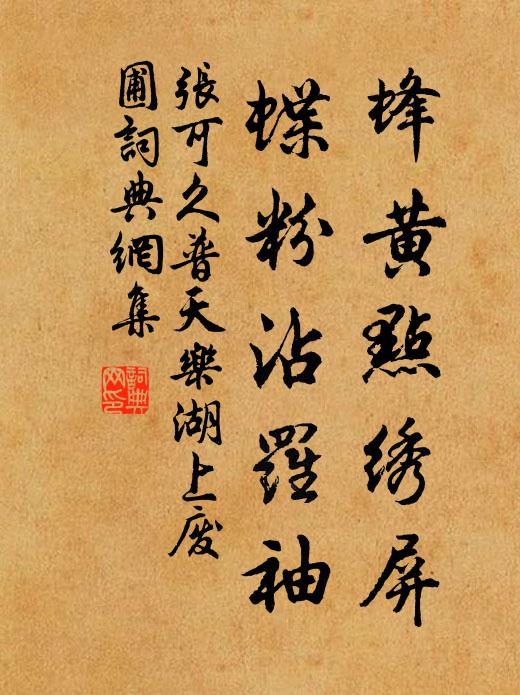 蜂黄點绣屏
蝶粉沾羅袖
張可久普天樂湖上废
圃詞典網集
詞典
网印